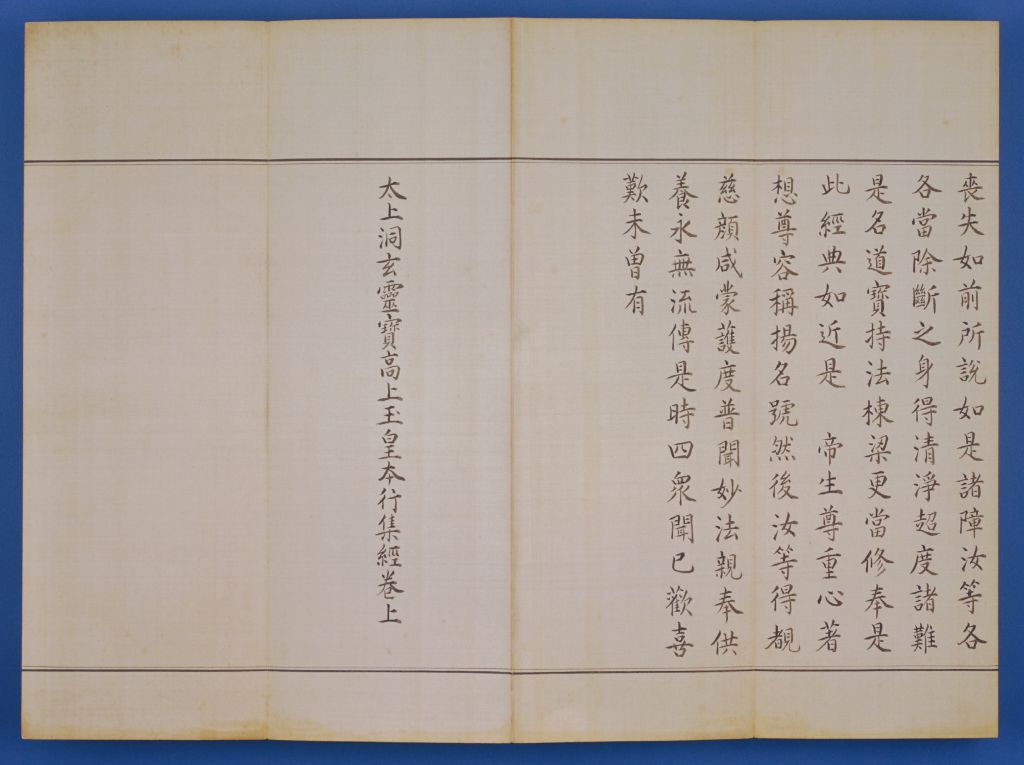 喪失如前所說如是諸障汝等各
各當除斷之身得清淨超度諸難
是名道寶持法棟梁更當修奉是
此經典如近是　帝生尊重心著
想尊容稱揚名號然後汝等得覩
慈顔咸蒙護度普聞妙法親奉供
養永無流傳是時四衆聞已歡喜
歎未曾有
太上洞玄靈寶高上玉皇本行集經卷上